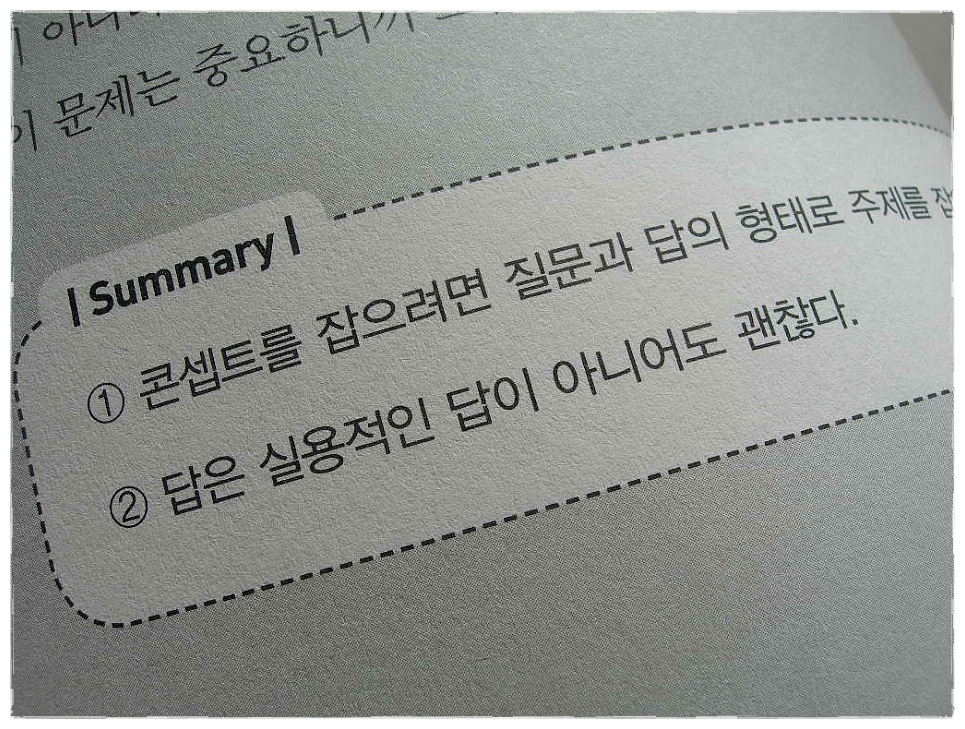 아니
이 문제는 중요하니까
| Summary |
① 콘셉트를 잡으려면 질문과 답의 형태로 주제를 잡
② 답은 실용적인 답이 아니어도 괜찮다.